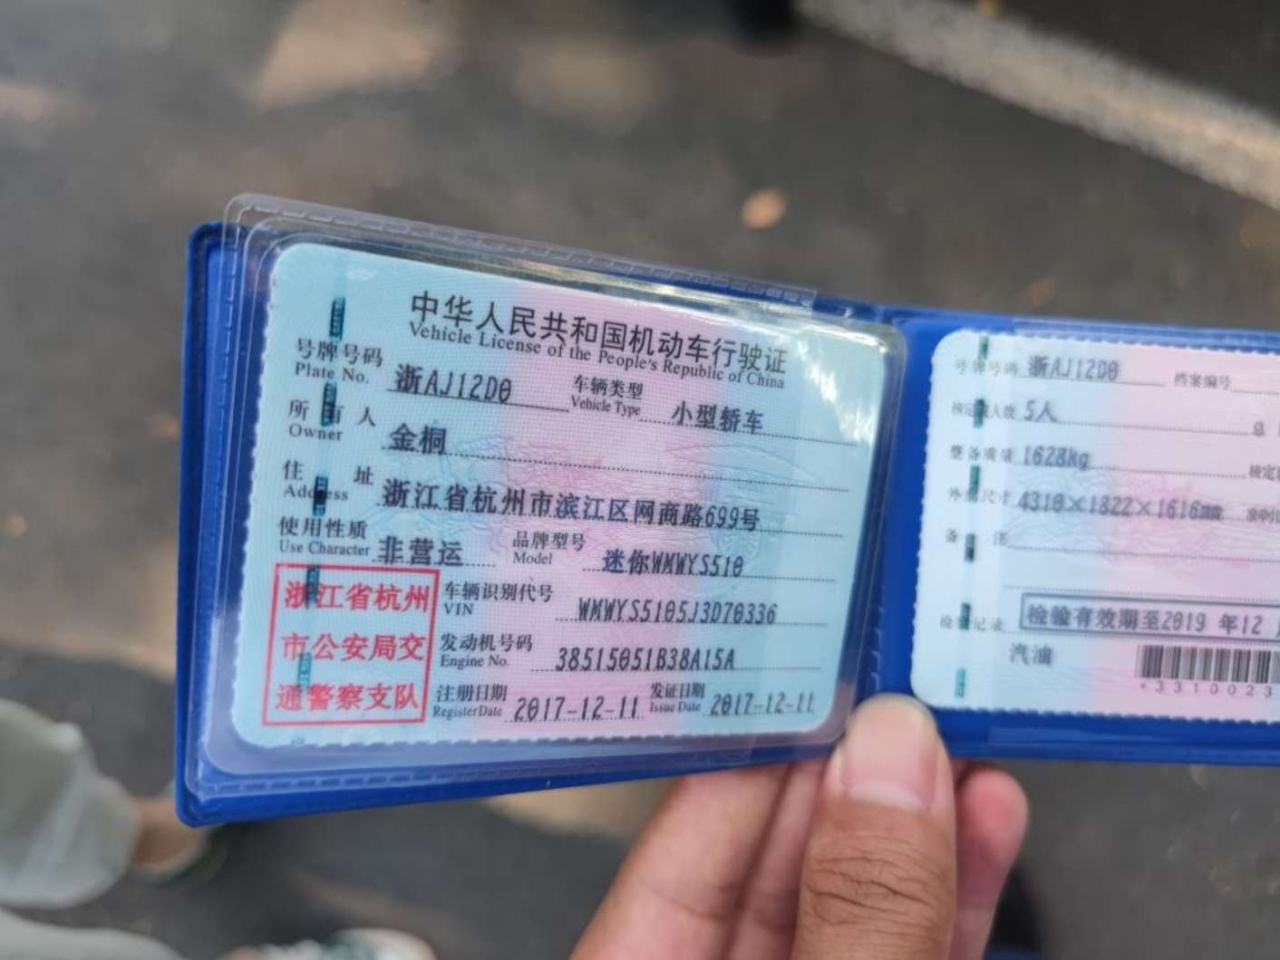 中华人民共和国机动车行驶证
Vehicle License of the People's Republic of China
号牌号码 浙AJ12D0 车辆类型 小型轿车
Plate No. Vehicle Type
所有人 金桐
Owner
住 址 浙江省杭州市滨江区网商路699号
Address
使用性质 非营运 品牌型号 迷你WMWYS510
Use Character Model
浙江省杭州
市公安局交
通警察支队
车辆识别代号 WMWYS5105J3D70336
VIN
发动机号码 38515051B38A15A
Engine No.
注册日期 2017-12-11 发证日期 2017-12-11
Register Date Issue Date
号牌号码 浙AJ12D0 档案编号
核定载人数 5人 总
整备质量 1628kg 核定
外廓尺寸 4310×1822×1616mm
备 注
检验记录 检验有效期至2019 年12
汽油
*3310023